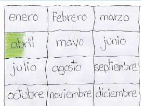 enero febrero marzo
abril mayo junio
julio agosto septiembre
octubre noviembre diciembre